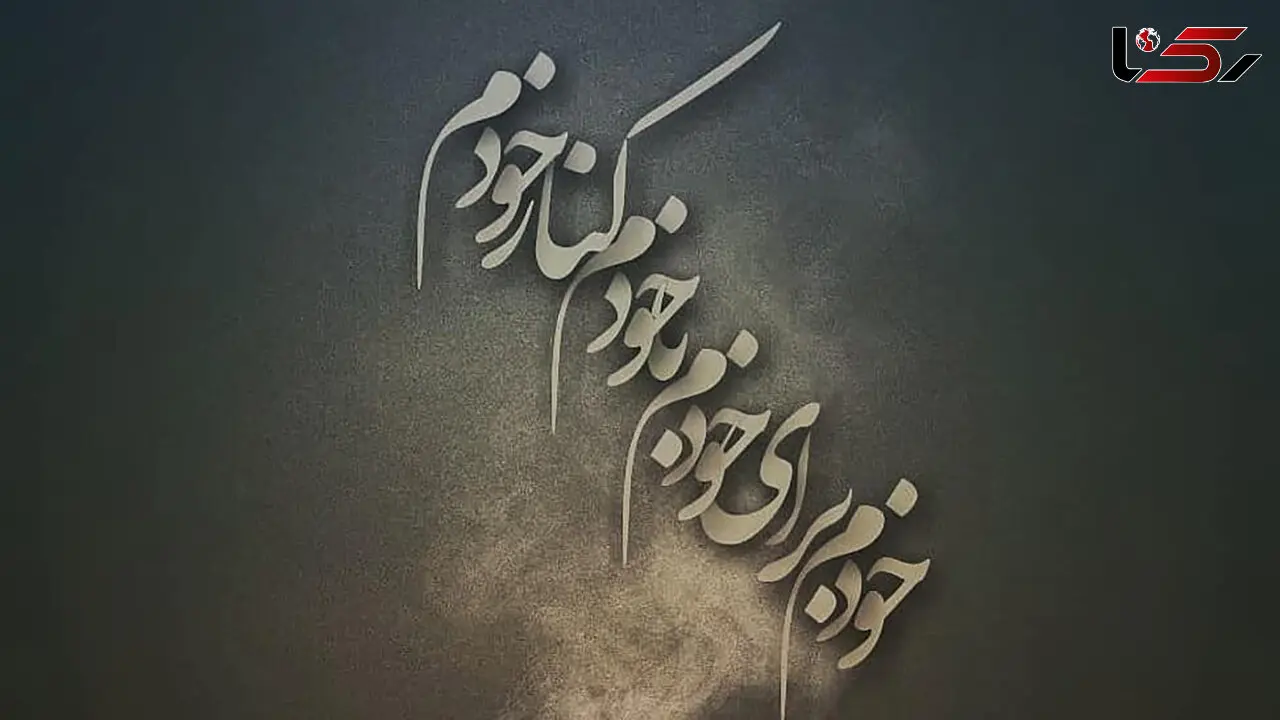 رکنا
خودم برای خودم با خودم کنار خودم